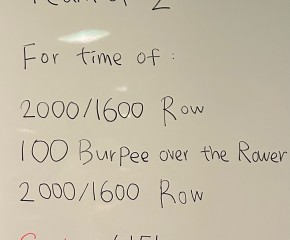 For time of :
2000/1600 Row
100 Burpee over the Rower
2000/1600 Row